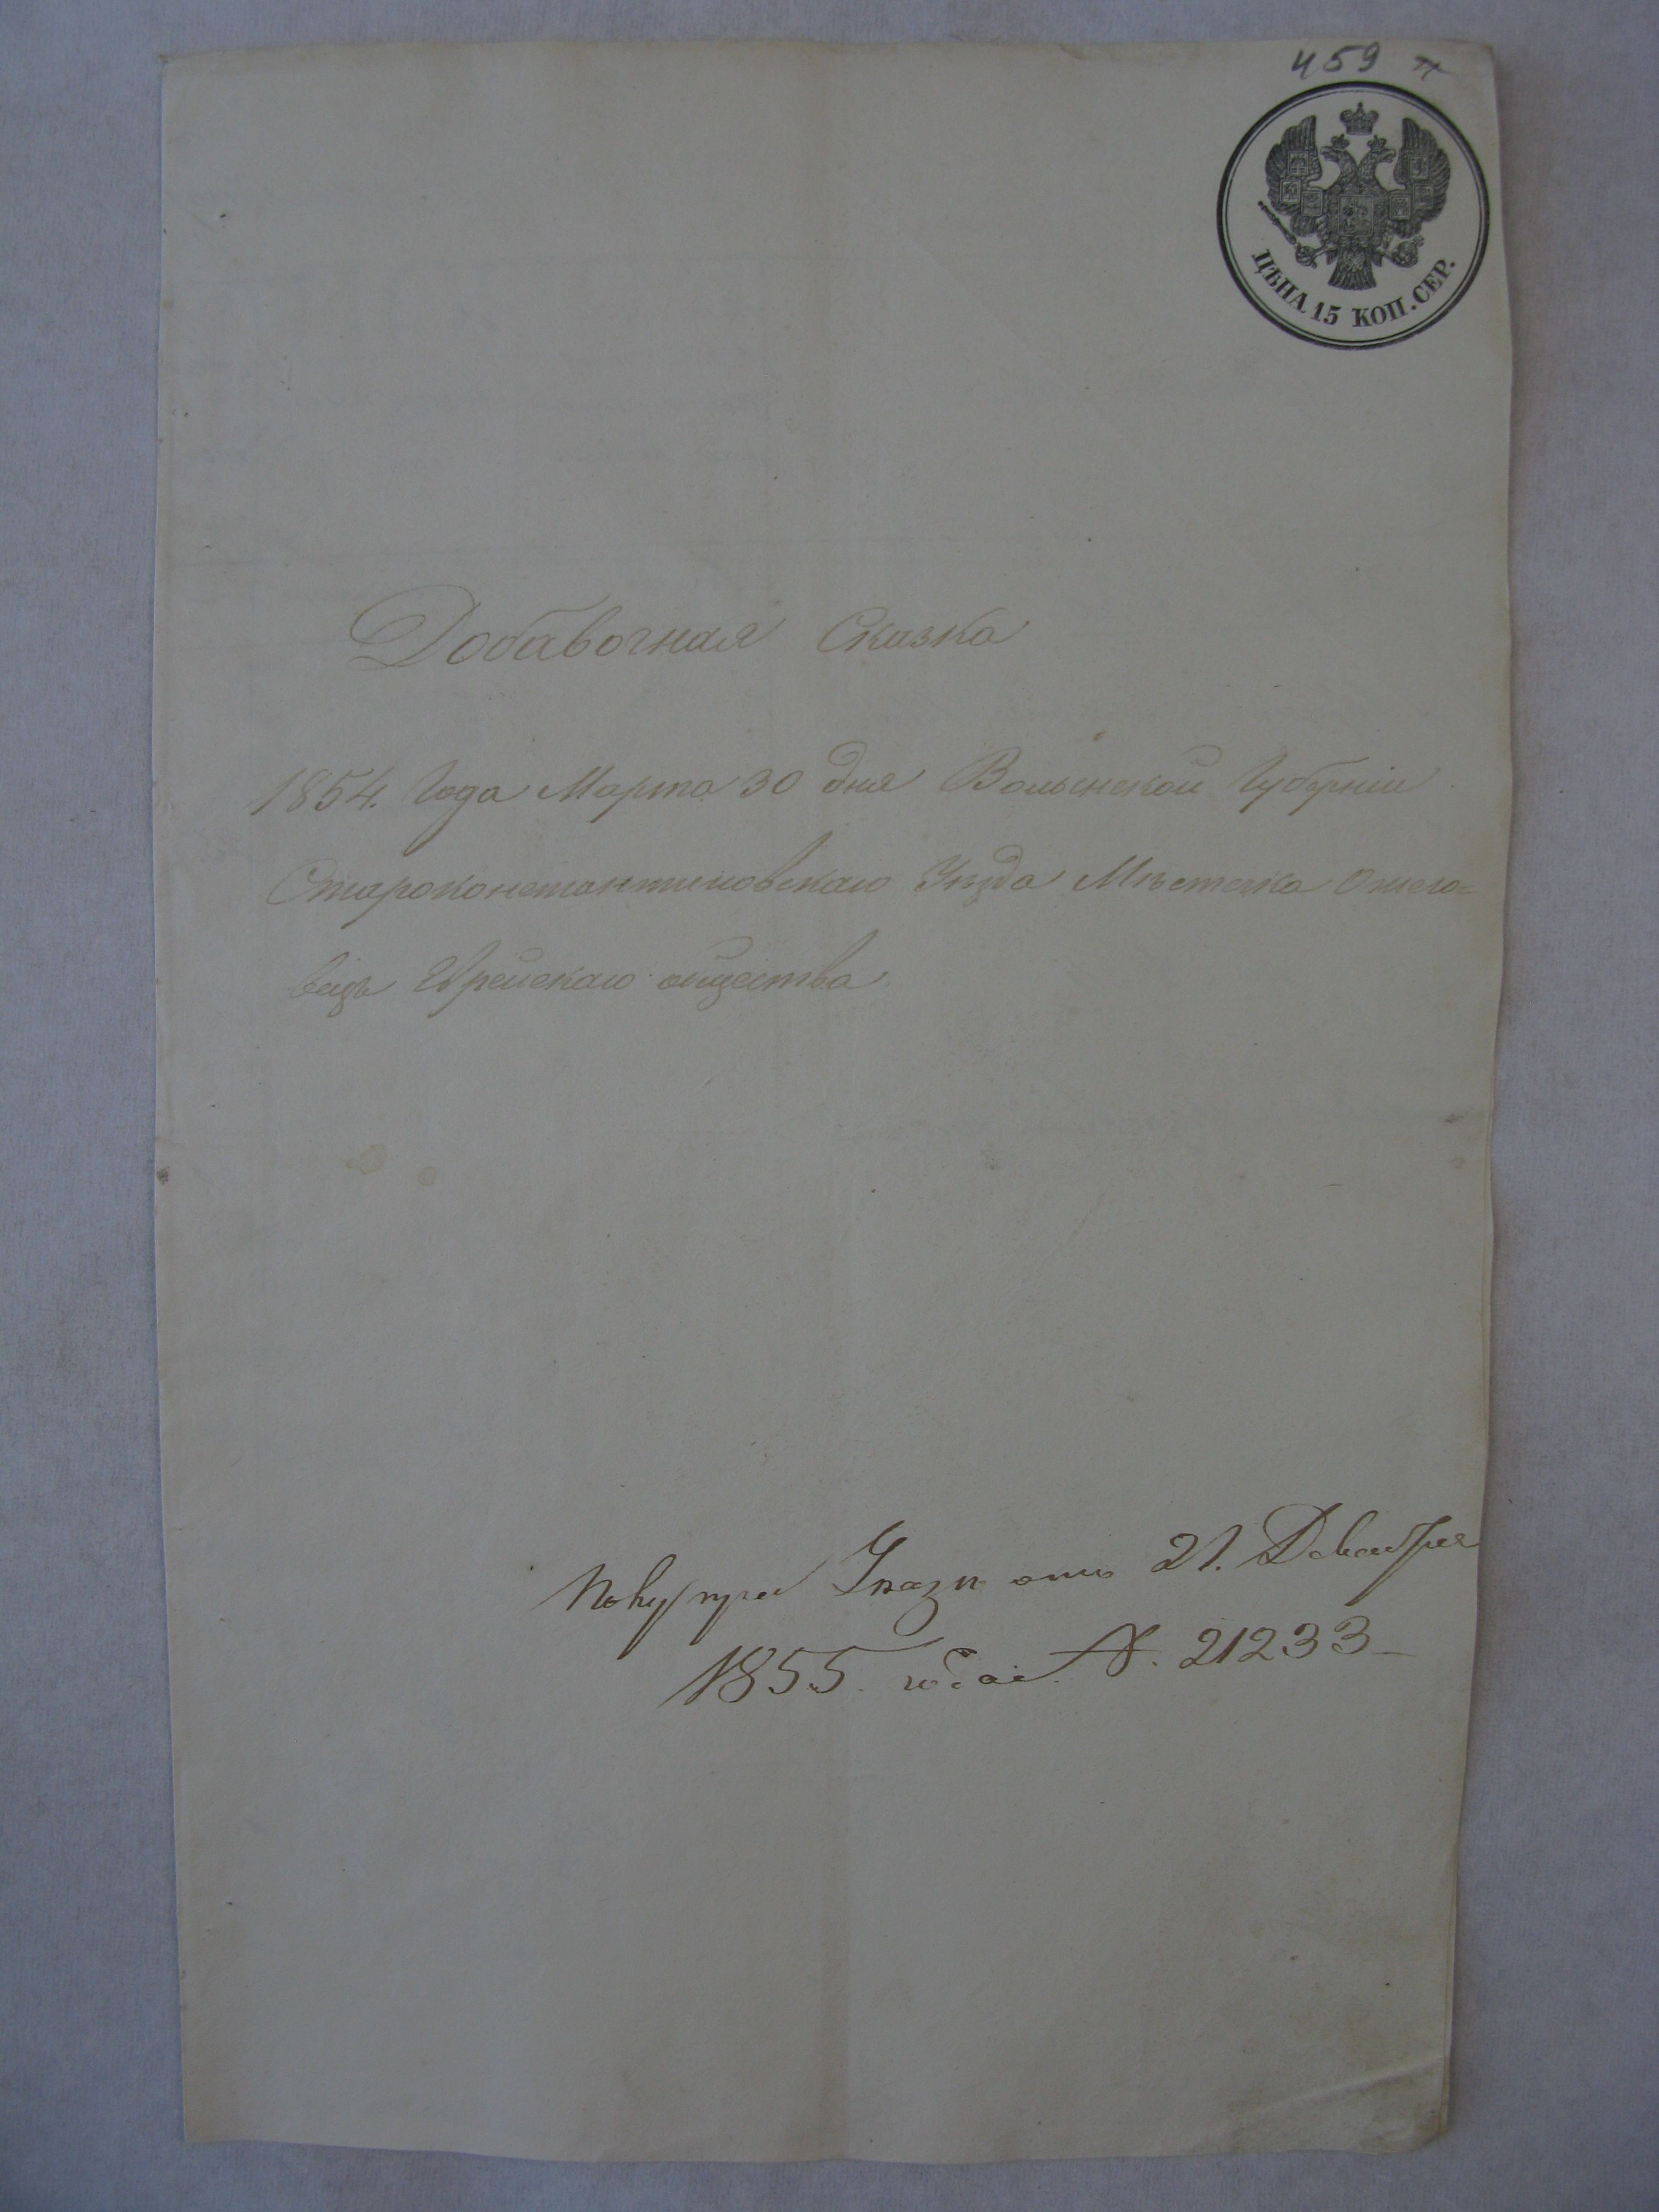 459
ЦѢНА 15 КОП. СЕР.
Добавочная Сказка
1854. Года Марта 30 дня Волынской Губерніи
Староконстантиновскаго Уѣзда Мѣстечка Ожего=
вецъ Еврейскаго общества
Указѣ отъ 21. Декабря
1855. года N. 21233